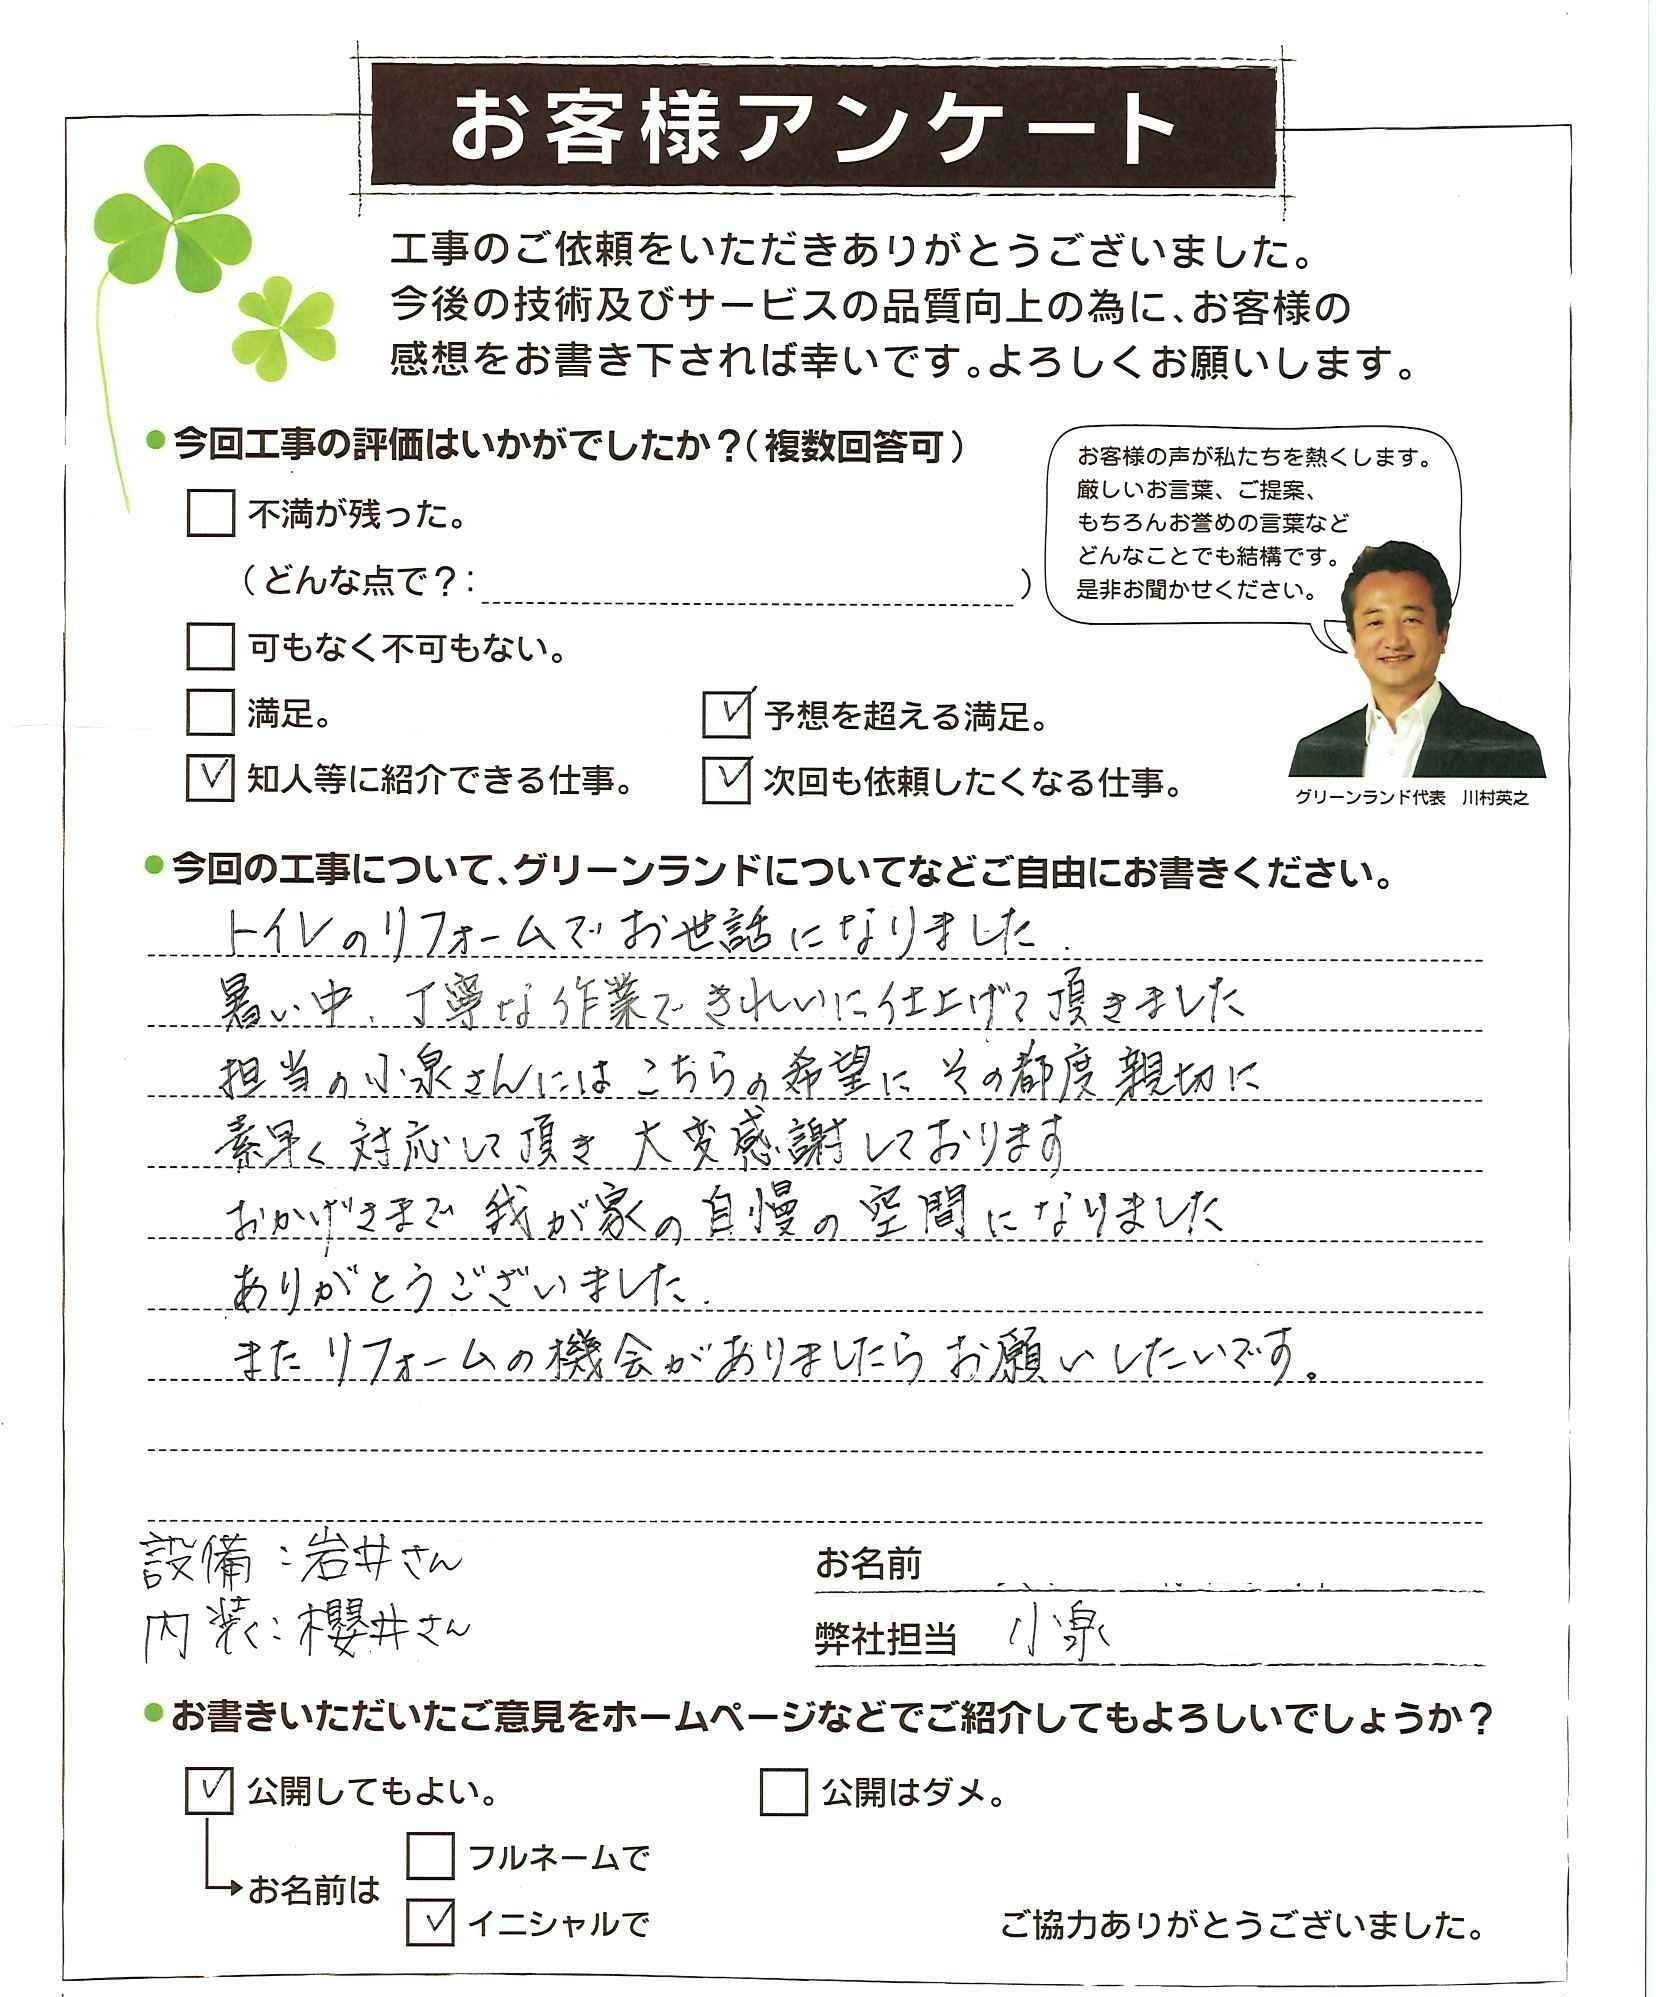 お客様アンケート
工事のご依頼をいただきありがとうございました。
今後の技術及びサービスの品質向上の為に、お客様の
感想をお書き下されば幸いです。よろしくお願いします。
今回工事の評価はいかがでしたか？（複数回答可）
不満が残った。
（どんな点で？：　）
可もなく不可もない。
満足。
予想を超える満足。
知人等に紹介できる仕事。
次回も依頼したくなる仕事。
お客様の声が私たちを熱くします。
厳しいお言葉、ご提案、
もちろんお誉めの言葉など
どんなことでも結構です。
是非お聞かせください。
グリーンランド代表　川村英之
今回の工事について、グリーンランドについてなどご自由にお書きください。
トイレのリフォームでお世話になりました.
暑い中、丁寧な作業できれいに仕上げて頂きました
担当の小泉さんにはこちらの希望にその都度親切に
素早く対応して頂き大変感謝しております
おかげさまで我が家の自慢の空間になりました
ありがとうございました.
またリフォームの機会がありましたらお願いしたいです。
設備：岩井さん
内装：櫻井さん
お名前
弊社担当 小泉
お書きいただいたご意見をホームページなどでご紹介してもよろしいでしょうか？
公開してもよい。
公開はダメ。
お名前は
フルネームで
イニシャルで
ご協力ありがとうございました。